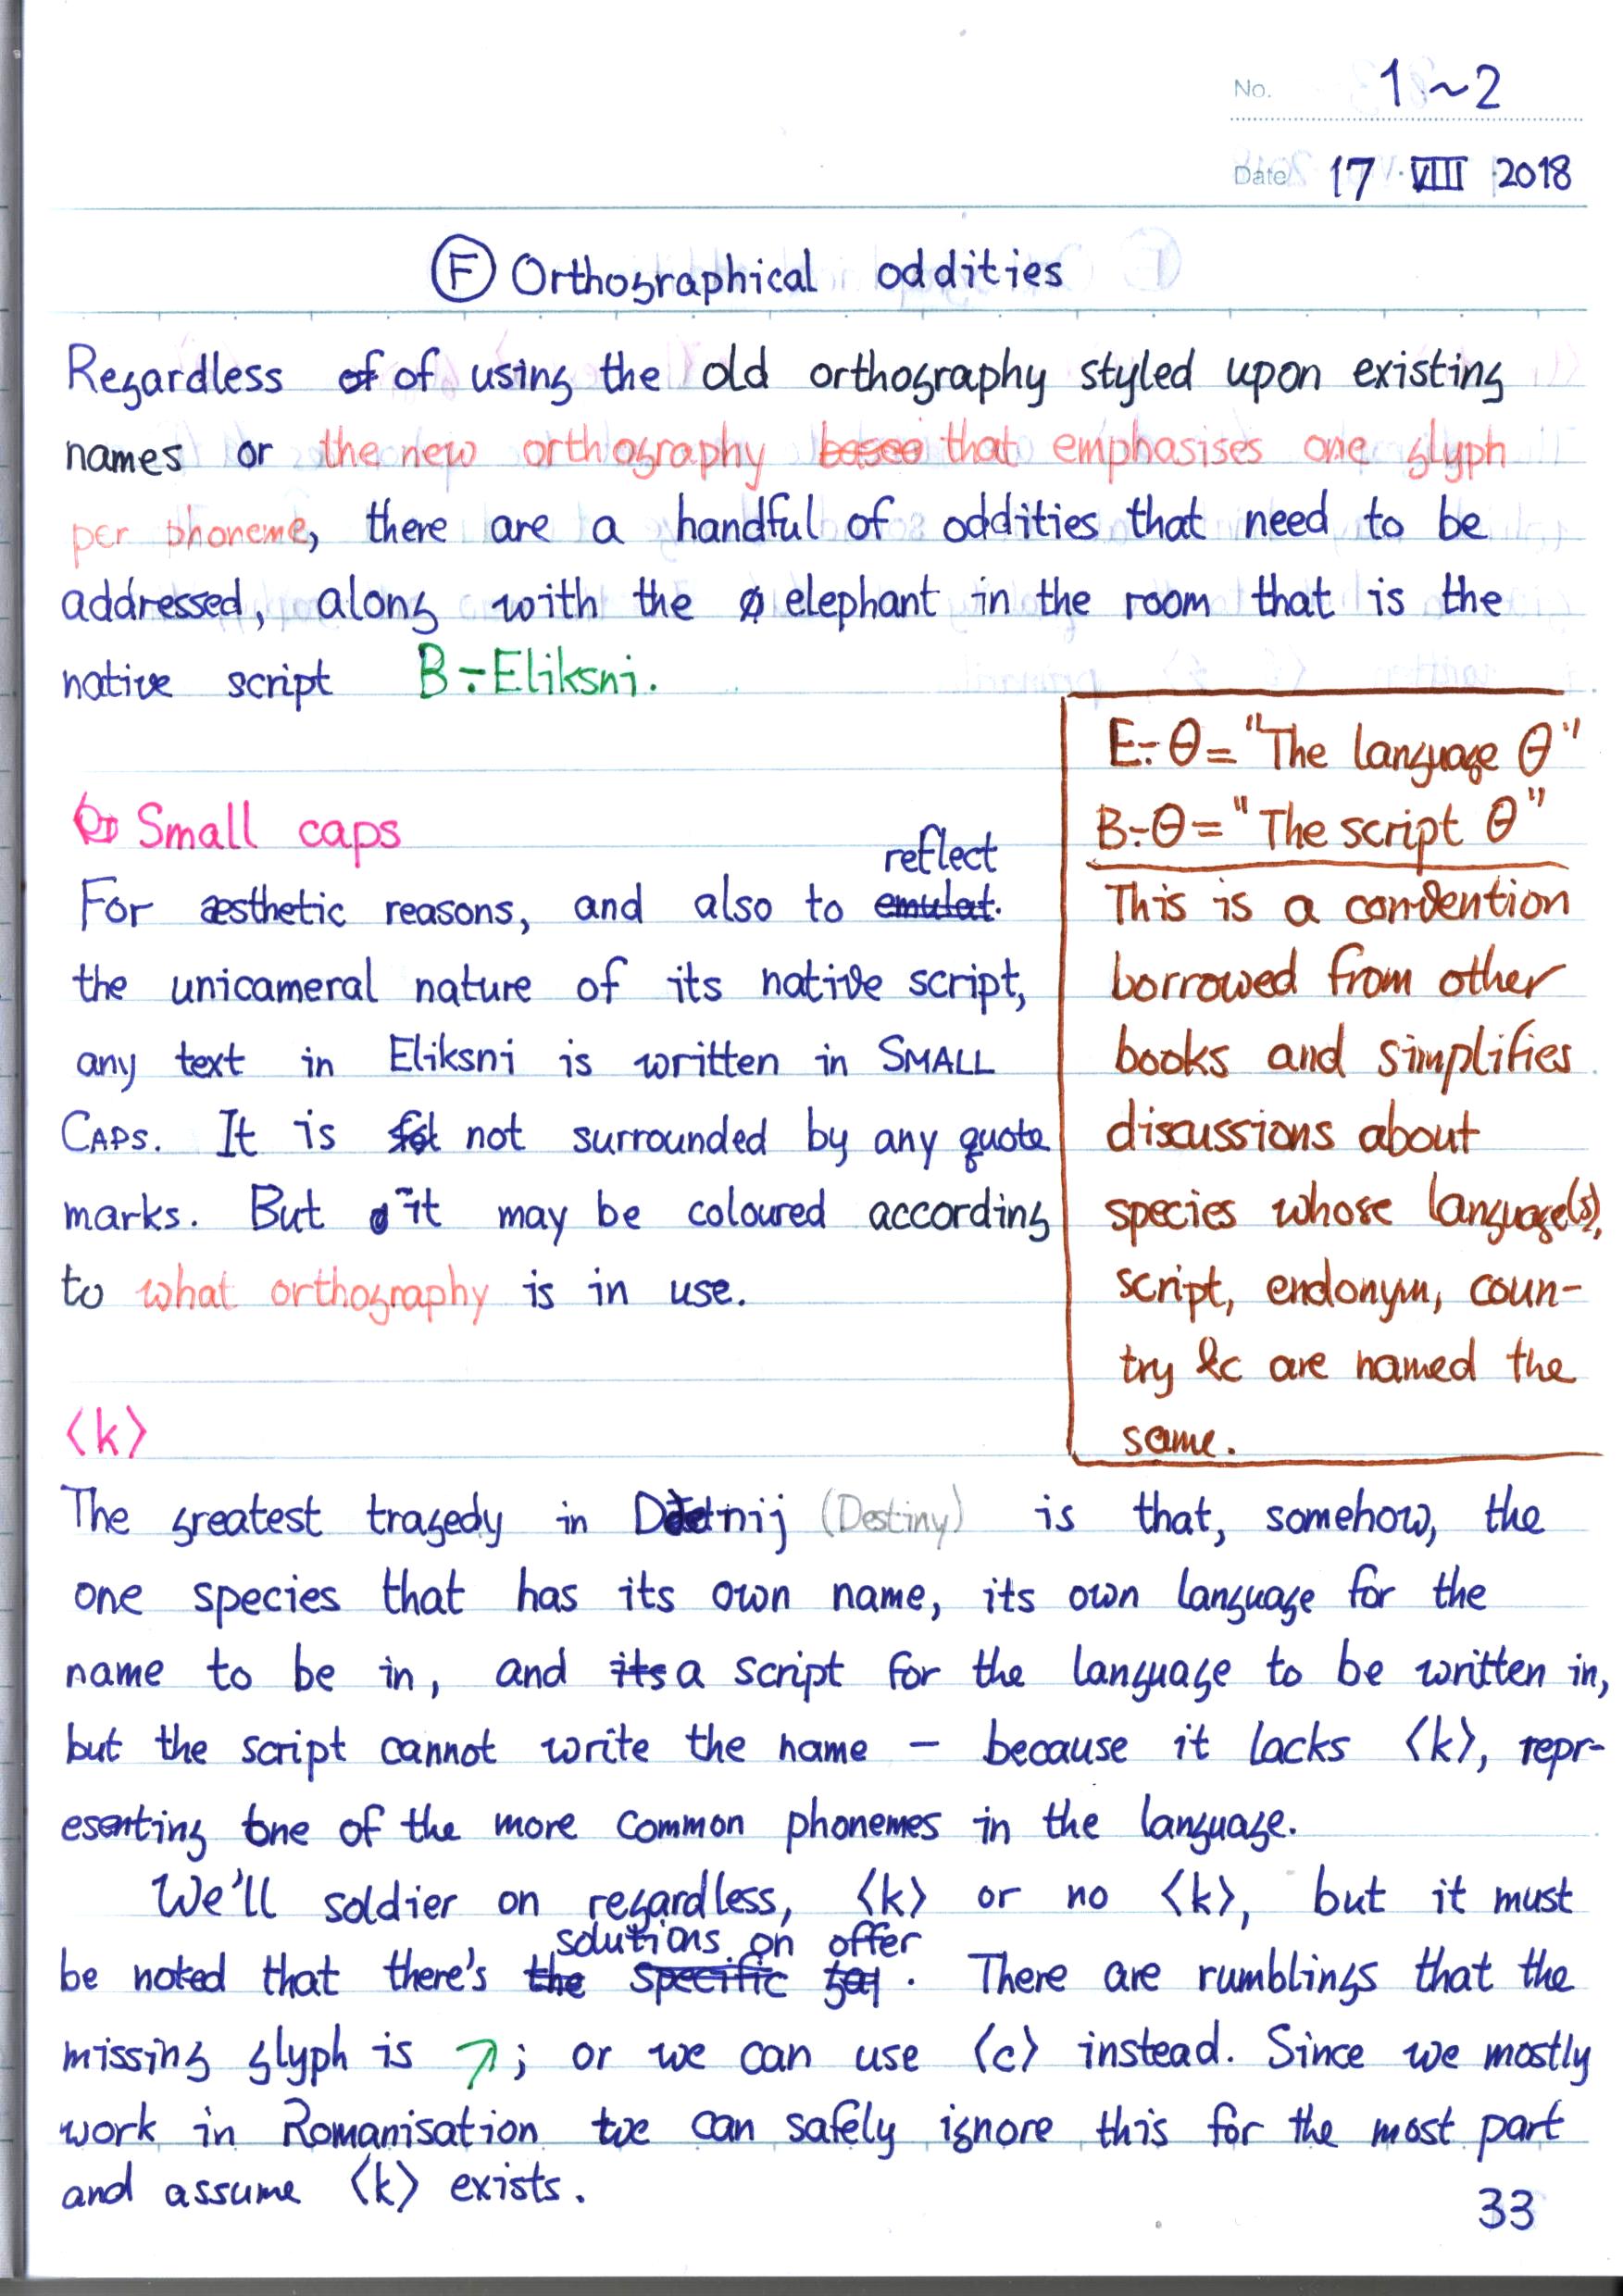 No. 1~2
Date 17 · VIII · 2018
Ⓕ Orthographical oddities
Regardless of of using the old orthography styled upon existing
names or the new orthography that emphasises one glyph
per phoneme, there are a handful of oddities that need to be
addressed, along with the elephant in the room that is the
native script B÷Eliksni.
Small caps
For æsthetic reasons, and also to reflect
the unicameral nature of its native script,
any text in Eliksni is written in SMALL
CAPS. It is not surrounded by any quote
marks. But it may be coloured according
to what orthography is in use.
E÷θ= "The language θ"
B÷θ= "The script θ"
This is a convention
borrowed from other
books and simplifies
discussions about
species whose language(s),
script, endonym, coun-
try &c are named the
same.
⟨k⟩
The greatest tragedy in (Destiny) is that, somehow, the
one species that has its own name, its own language for the
name to be in, and its a script for the language to be written in,
but the script cannot write the name – because it lacks ⟨k⟩, repr-
esenting one of the more common phonemes in the language.
We'll soldier on regardless, ⟨k⟩ or no ⟨k⟩, but it must
be noted that there's the specific solutions on offer. There are rumblings that the
missing glyph is ; or we can use ⟨c⟩ instead. Since we mostly
work in Romanisation we can safely ignore this for the most part
and assume ⟨k⟩ exists.
33